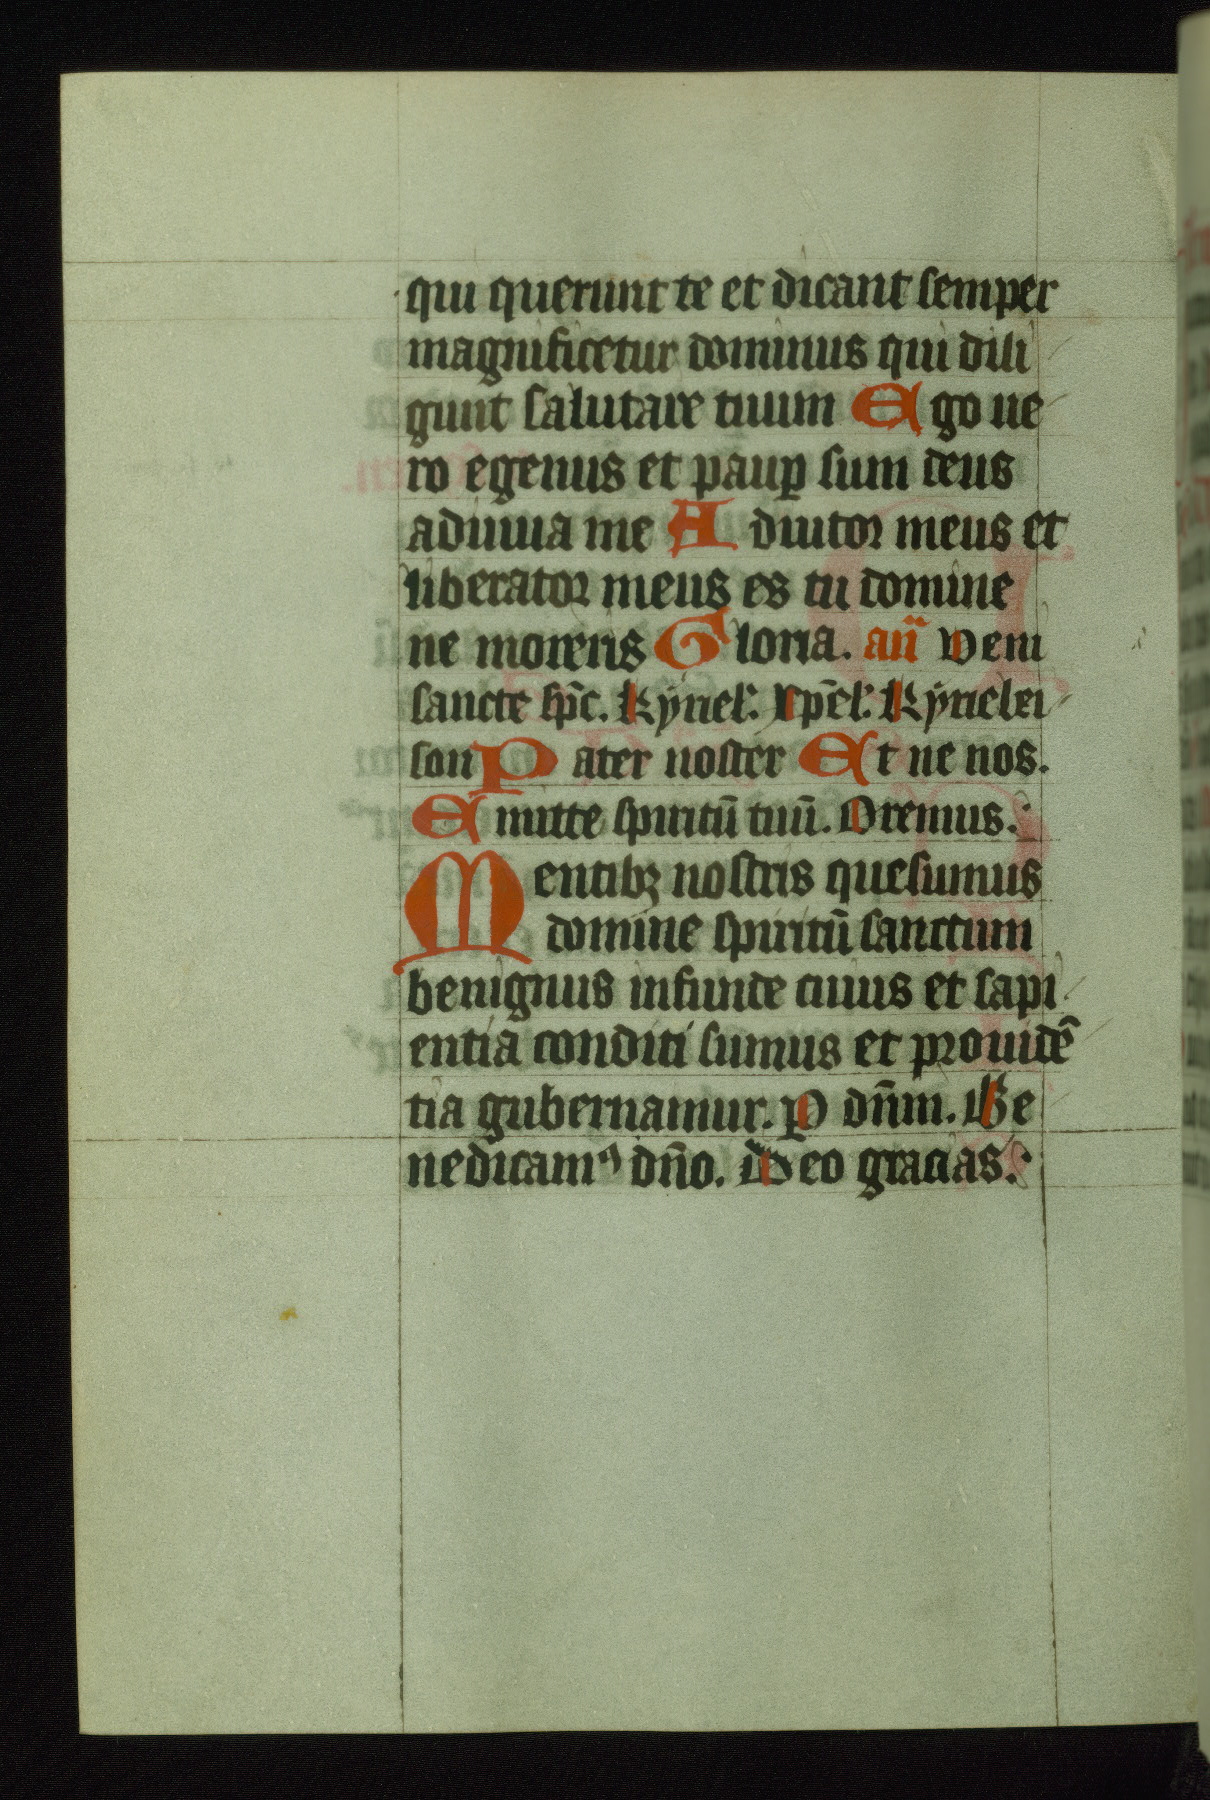 qui querunt te et dicant semper
magnificetur dominus qui dili
gunt salutare tuum Ego ue
ro egenus et paup̲ sum deus
adiuua me Adiutor meus et
liberator meus es tu domine
ne moreris Gloria. an̄ Veni
sancte sp̄c. Kyriel'. Xp̄el'. Kyrielei
son Pater noster Et ne nos.
Emitte spiritū tuū. Oremus.
Mentibꝫ nostris quesumus
domine spiritū sanctum
benignus infunde cuius et sapi
entia conditi sumus et prouidē
tia gubernamur. P dn̄m. Be
nedicamꝰ dn̄o. Deo gracias.